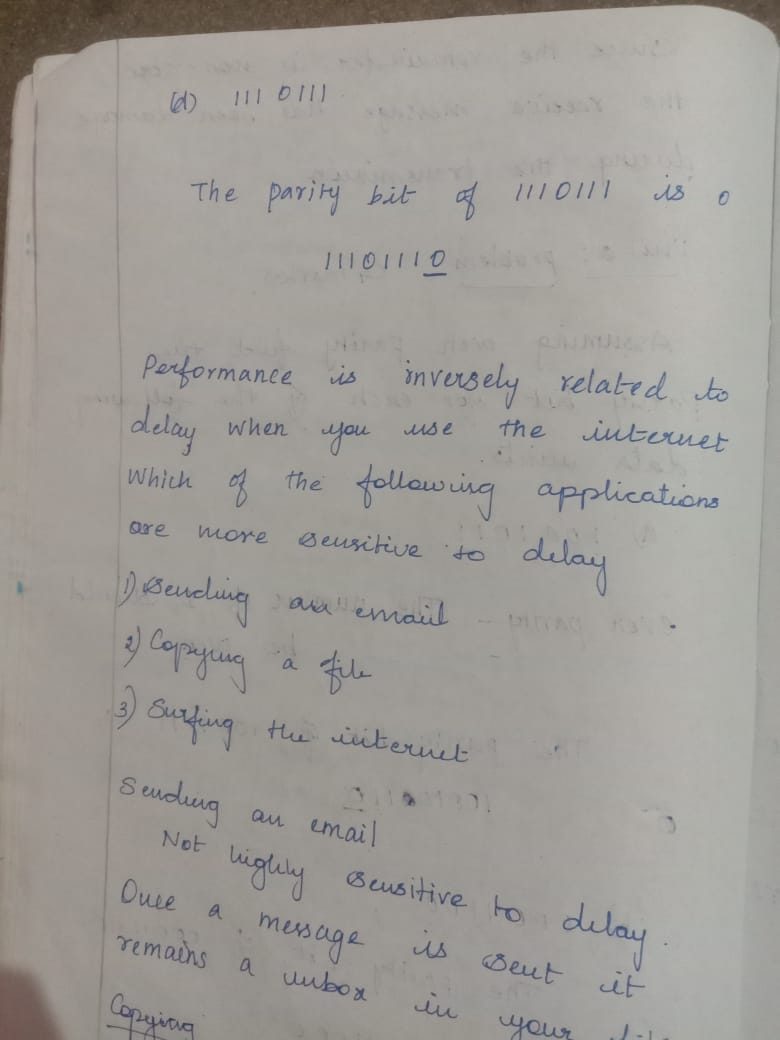 (d) 1110111
The parity bit of 1110111 is 0
11101110
Performance is inversely related to
delay when you use the internet
Which of the following applications
are more sensitive to delay
1) Sending an email
2) Copying a file
3) Surfing the internet
Sending an email
Not highly sensitive to delay.
Once a message is sent it
remains a inbox in your
Copying